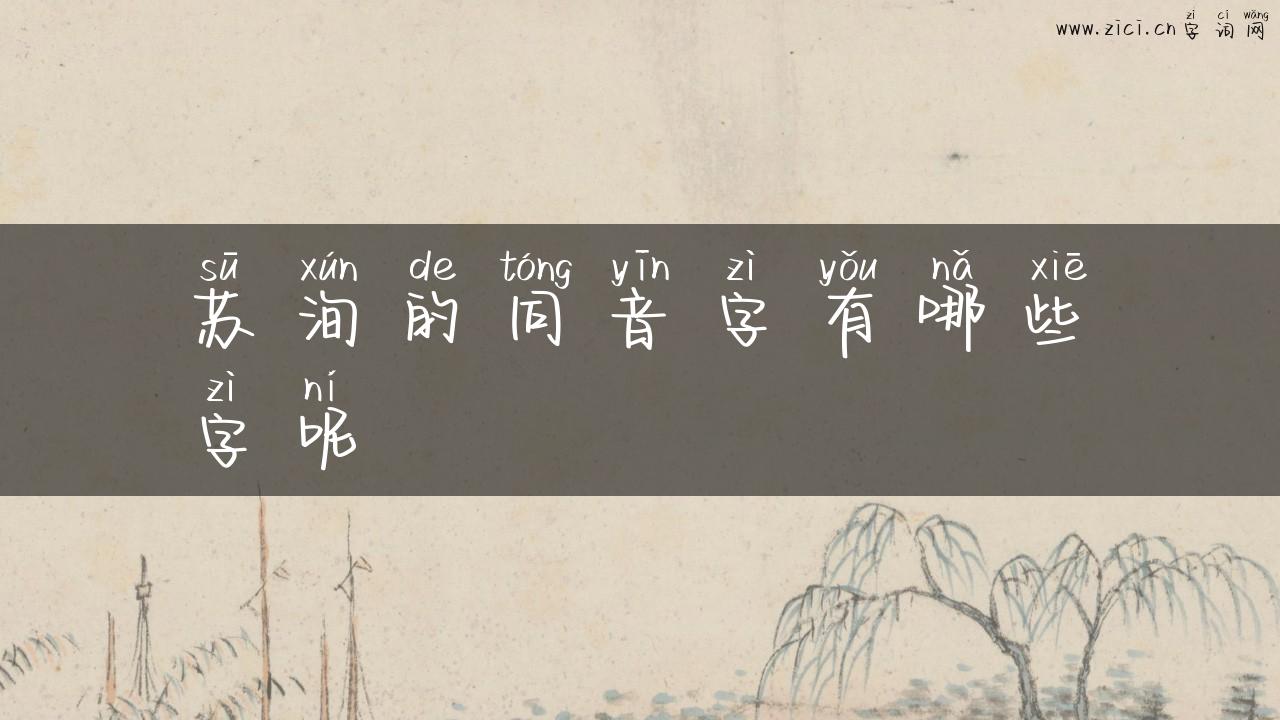 zì cí wǎng
www.zici.cn 字词网
sū xún de tóng yīn zì yǒu nǎ xiē
苏洵的同音字有哪些
zì ní
字呢